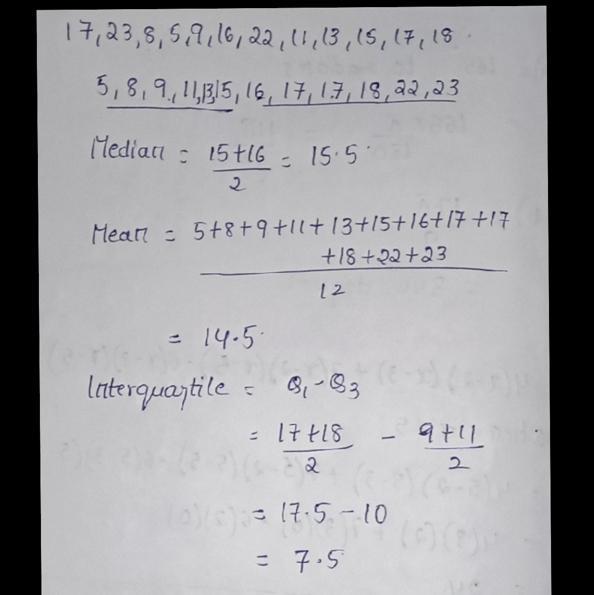 17,23,8,5,9,16,22,11,13,15,17,18.
5,8,9,11,13,15,16,17,17,18,22,23
Median = 15+16/2 = 15.5
Mean = 5+8+9+11+13+15+16+17+17
+18+22+23
12
= 14.5
Interquartile = Q1-Q3
= 17+18/2 - 9+11/2
= 17.5-10
= 7.5